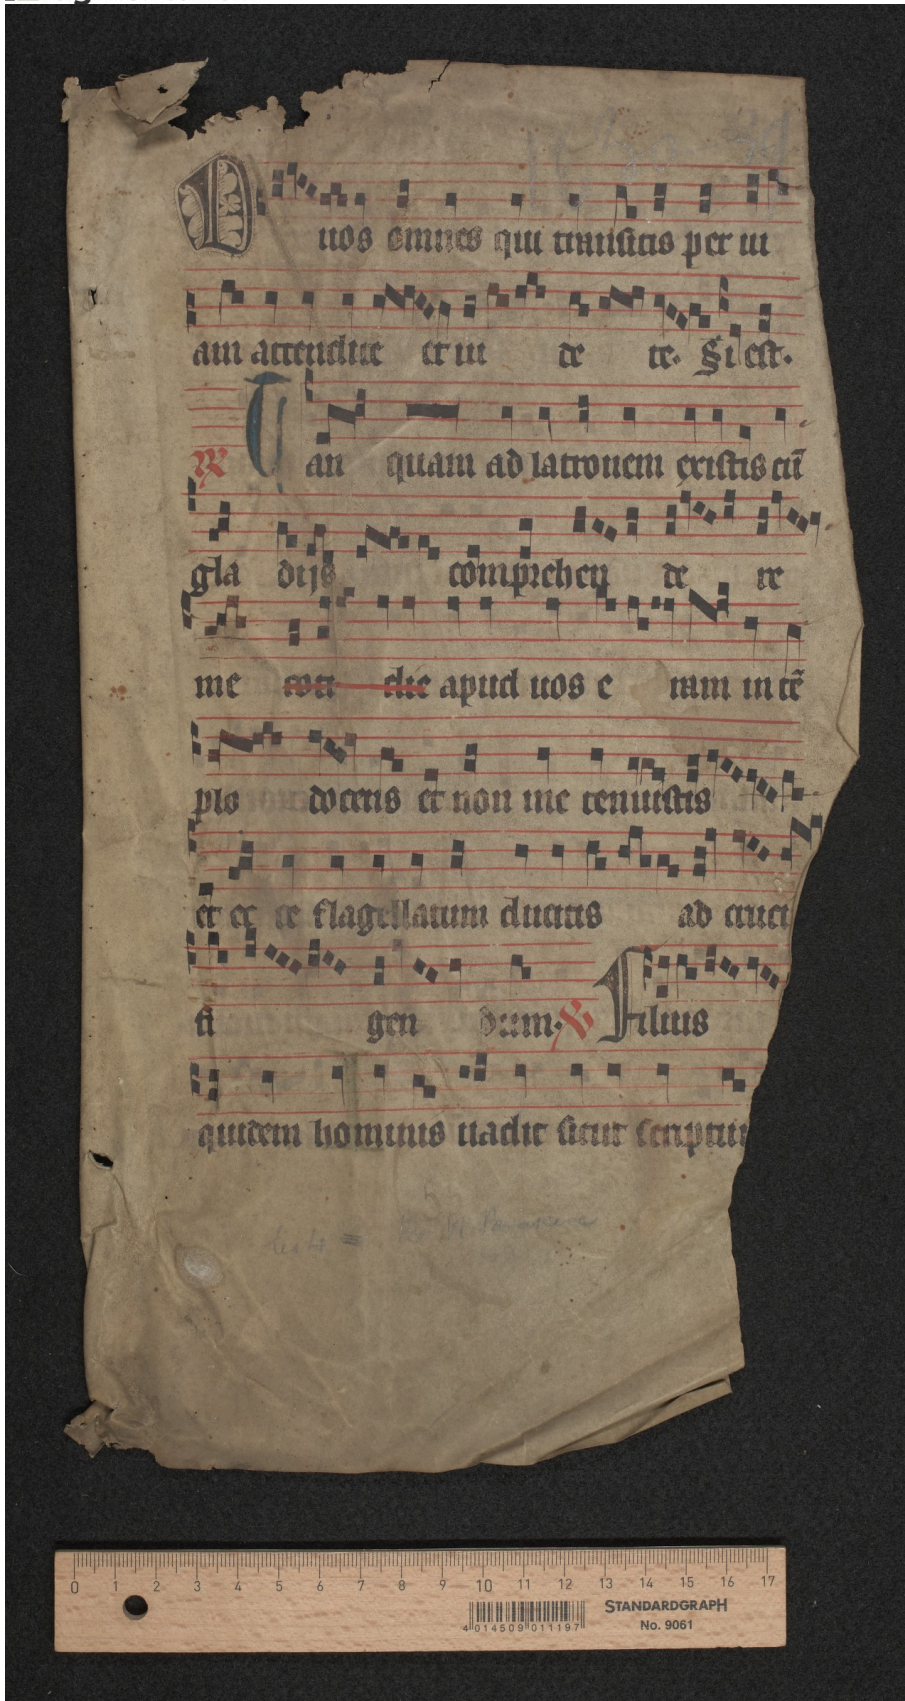 O uos omnes qui transitis per ui
am attendite et ui de te. Si est.
R Tan quam ad latronem existis cū
gla dijs comprehen de re
me coti die apud uos e ram in tē
plo docens et non me tenuistis
et ec ce flagellatum ducitis ad cruci
fi gen dum. V Filius
quidem hominis uadit sicut scriptum
0 1 2 3 4 5 6 7 8 9 10 11 12 13 14 15 16 17
STANDARDGRAPH
No. 9061
4 014509 011197